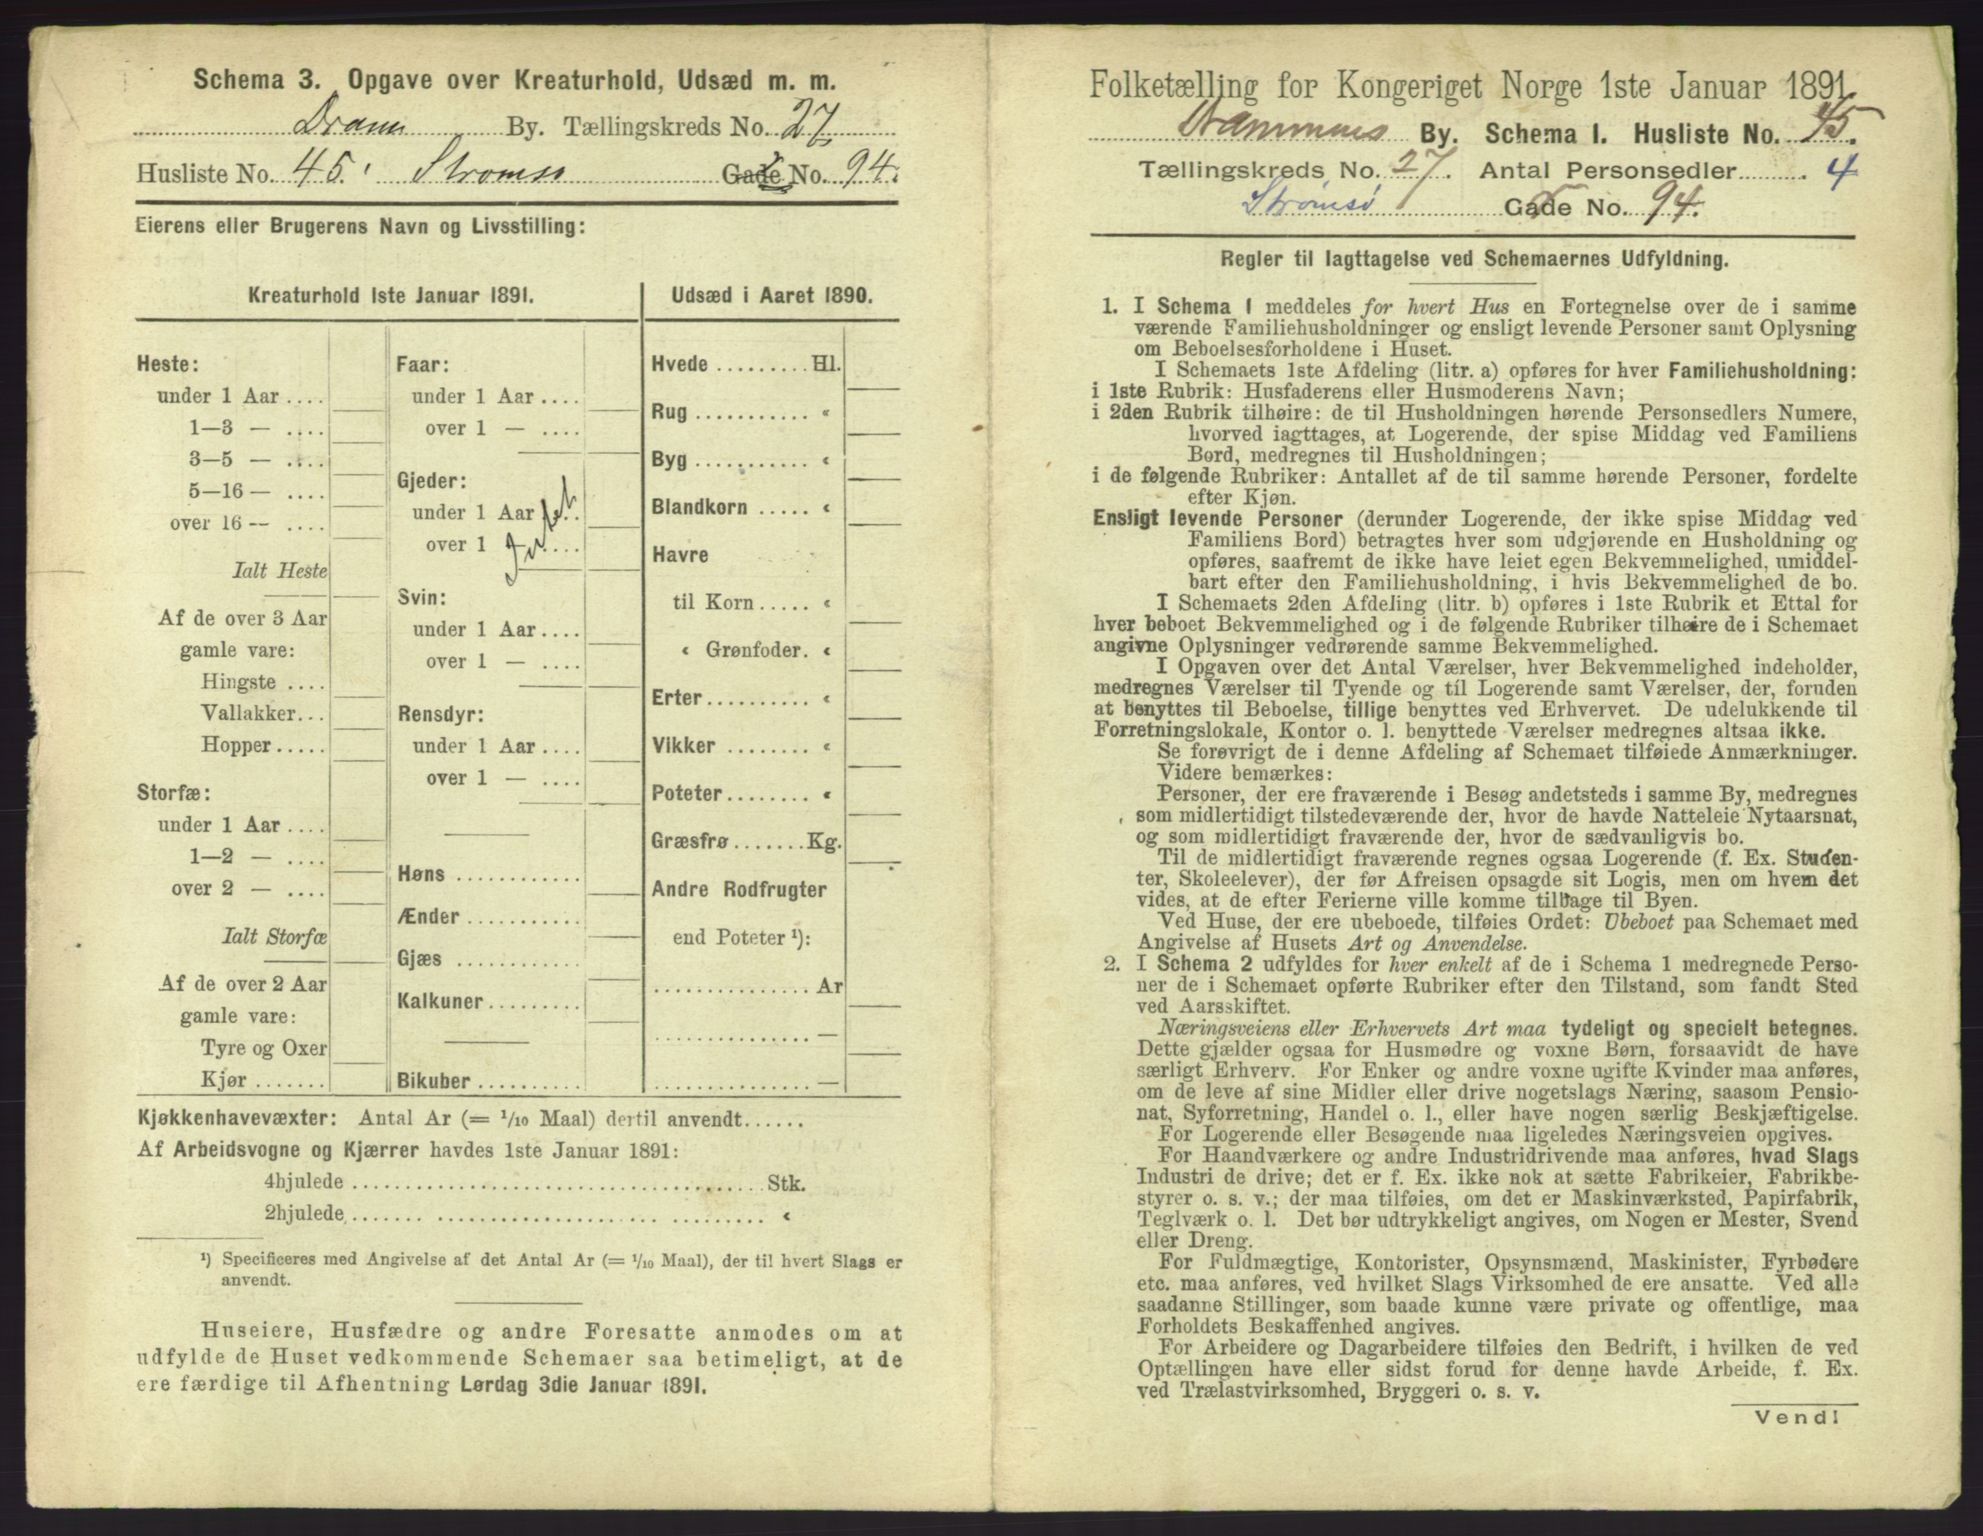 Schema 3. Opgave over Kreaturhold, Udsæd m. m.
Dramm By. Tællingskreds No. 27
Husliste No. 45. Strømsø Gade No. 94.
Eierens eller Brugerens Navn og Livsstilling:
Kreaturhold 1ste Januar 1891.
Heste:
under 1 Aar ....
1—3 — ....
3—5 — ....
5—16 — ....
over 16 — ....
Ialt Heste
Af de over 3 Aar
gamle vare:
Hingste ....
Vallakker...
Hopper.....
Storfæ:
under 1 Aar ....
1—2 — ....
over 2 — ....
Ialt Storfæ
Af de over 2 Aar
gamle vare:
Tyre og Oxer
Kjør.......
Faar:
under 1 Aar ....
over 1 — ....
Gjeder:
under 1 Aar ....
over 1 ....
Intet
Svin:
under 1 Aar ....
over 1 — ....
Rensdyr:
under 1 Aar ....
over 1 — ....
Høns ............
Ænder ...........
Gjæs ............
Kalkuner.........
Bikuber ..........
Udsæd i Aaret 1890.
Hvede ......... Hl.
Rug ........... «
Byg ........... «
Blandkorn ..... «
Havre
til Korn ..... «
« Grønfoder. «
Erter .......... «
Vikker ......... «
Poteter........ «
Græsfrø ....... Kg.
Andre Rodfrugter
end Poteter ¹):
............... Ar
............... —
............... —
Kjøkkenhavevæxter: Antal Ar (= 1/10 Maal) dertil anvendt......
Af Arbeidsvogne og Kjærrer havdes 1ste Januar 1891:
4hjulede ........................................ Stk.
2hjulede ........................................ «
¹) Specificeres med Angivelse af det Antal Ar (= 1/10 Maal), der til hvert Slags er
anvendt.
Huseiere, Husfædre og andre Foresatte anmodes om at
udfylde de Huset vedkommende Schemaer saa betimeligt, at de
ere færdige til Afhentning Lørdag 3die Januar 1891.
Folketælling for Kongeriget Norge 1ste Januar 1891.
Drammens By. Schema 1. Husliste No. 45.
Tællingskreds No. 27. Antal Personsedler ........ 4
Strømsø Gade No. 94.
Regler til Iagttagelse ved Schemaernes Udfyldning.
1. I Schema 1 meddeles for hvert Hus en Fortegnelse over de i samme
værende Familiehusholdninger og ensligt levende Personer samt Oplysning
om Beboelsesforholdene i Huset.
I Schemaets 1ste Afdeling (litr. a) opføres for hver Familiehusholdning:
i 1ste Rubrik: Husfaderens eller Husmoderens Navn;
i 2den Rubrik tilhøire: de til Husholdningen hørende Personsedlers Numere,
hvorved iagttages, at Logerende, der spise Middag ved Familiens
Bord, medregnes til Husholdningen;
i de følgende Rubriker: Antallet af de til samme hørende Personer, fordelte
efter Kjøn.
Ensligt levende Personer (derunder Logerende, der ikke spise Middag ved
Familiens Bord) betragtes hver som udgjørende en Husholdning og
opføres, saafremt de ikke have leiet egen Bekvemmelighed, umiddel-
bart efter den Familiehusholdning, i hvis Bekvemmelighed de bo.
I Schemaets 2den Afdeling (litr. b) opføres i 1ste Rubrik et Ettal for
hver beboet Bekvemmelighed og i de følgende Rubriker tilhøire de i Schemaet
angivne Oplysninger vedrørende samme Bekvemmelighed.
I Opgaven over det Antal Værelser, hver Bekvemmelighed indeholder,
medregnes Værelser til Tyende og til Logerende samt Værelser, der, foruden
at benyttes til Beboelse, tillige benyttes ved Erhvervet. De udelukkende til
Forretningslokale, Kontor o. l. benyttede Værelser medregnes altsaa ikke.
Se forøvrigt de i denne Afdeling af Schemaet tilføiede Anmærkninger.
Videre bemærkes:
Personer, der ere fraværende i Besøg andetsteds i samme By, medregnes
som midlertidigt tilstedeværende der, hvor de havde Natteleie Nytaarsnat,
og som midlertidigt fraværende der, hvor de sædvanligvis bo.
Til de midlertidigt fraværende regnes ogsaa Logerende (f. Ex. Studen-
ter, Skoleelever), der før Afreisen opsagde sit Logis, men om hvem det
vides, at de efter Ferierne ville komme tilbage til Byen.
Ved Huse, der ere ubeboede, tilføies Ordet: Ubeboet paa Schemaet med
Angivelse af Husets Art og Anvendelse.
2. I Schema 2 udfyldes for hver enkelt af de i Schema 1 medregnede Perso-
ner de i Schemaet opførte Rubriker efter den Tilstand, som fandt Sted
ved Aarsskiftet.
Næringsveiens eller Erhvervets Art maa tydeligt og specielt betegnes.
Dette gjælder ogsaa for Husmødre og voxne Børn, forsaavidt de have
særligt Erhverv. For Enker og andre voxne ugifte Kvinder maa anføres,
om de leve af sine Midler eller drive nogetslags Næring, saasom Pensio-
nat, Syforretning, Handel o. l., eller have nogen særlig Beskjæftigelse.
For Logerende eller Besøgende maa ligeledes Næringsveien opgives.
For Haandværkere og andre Industridrivende maa anføres, hvad Slags
Industri de drive; det er f. Ex. ikke nok at sætte Fabrikeier, Fabrikbe-
styrer o. s. v.; der maa tilføies, om det er Maskinværksted, Papirfabrik,
Teglværk o. l. Det bør udtrykkeligt angives, om Nogen er Mester, Svend
eller Dreng.
For Fuldmægtige, Kontorister, Opsynsmænd, Maskinister, Fyrbødere
etc. maa anføres, ved hvilket Slags Virksomhed de ere ansatte. Ved alle
saadanne Stillinger, som baade kunne være private og offentlige, maa
Forholdets Beskaffenhed angives.
For Arbeidere og Dagarbeidere tilføies den Bedrift, i hvilken de ved
Optællingen have eller sidst forud for denne havde Arbeide, f. Ex.
ved Trælastvirksomhed, Bryggeri o. s. v.
Vend!